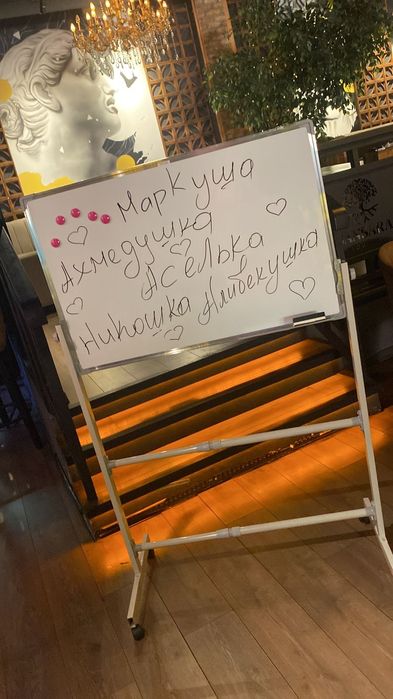 Маркуша
Ахмедушка
Аселька
Никошка Алибекушка